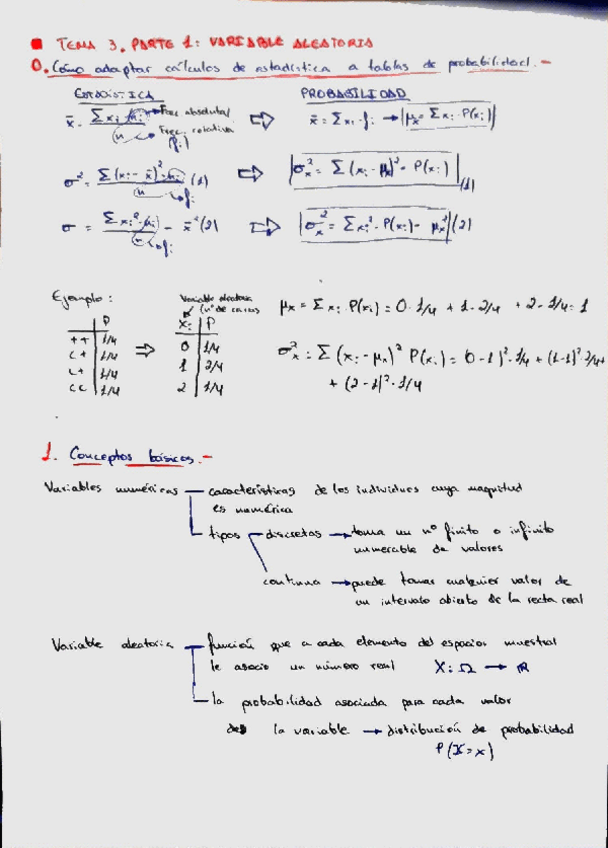 TEMA 3. PARTE 1: VARIABLE ALEATORIA
0. Cómo adaptar cálculos de estadística a tablas de probabilidad.-
ESTADÍSTICA PROBABILIDAD
x̄ = Σ xi · ni / n → Frec absoluta / Frec. relativa (fi) ⇒ x̄ = Σ xi · fi → |μx = Σ xi · P(xi)|
σ² = Σ (xi - x̄)² · ni / n (1) → fi ⇒ |σ²x = Σ (xi - μx)² · P(xi)| (1)
σ = Σ xi² · ni / n - x̄² (2) → fi ⇒ |σ²x = Σ xi² · P(xi) - μx²| (2)
Ejemplo:
P
++ 1/4
C+ 1/4
C+ 1/4
CC 1/4
⇒
Variable aleatoria
(nº de caras
Xi P
0 1/4
1 2/4
2 1/4
μx = Σ xi · P(xi) = 0 · 1/4 + 1 · 2/4 + 2 · 1/4 = 1
σ²x = Σ (xi - μx)² P(xi) = (0-1)² · 1/4 + (1-1)² · 2/4 +
+ (2-1)² · 1/4
1. Conceptos básicos.-
Variables numéricas — características de los individuos cuya magnitud
es numérica
tipos — discretas → toma un nº finito o infinito
numerable de valores
continua → puede tomar cualquier valor de
un intervalo abierto de la recta real
Variable aleatoria — función que a cada elemento del espacio muestral
le asocia un número real X: Ω → ℝ
la probabilidad asociada para cada valor
de la variable → distribución de probabilidad
P(X=x)